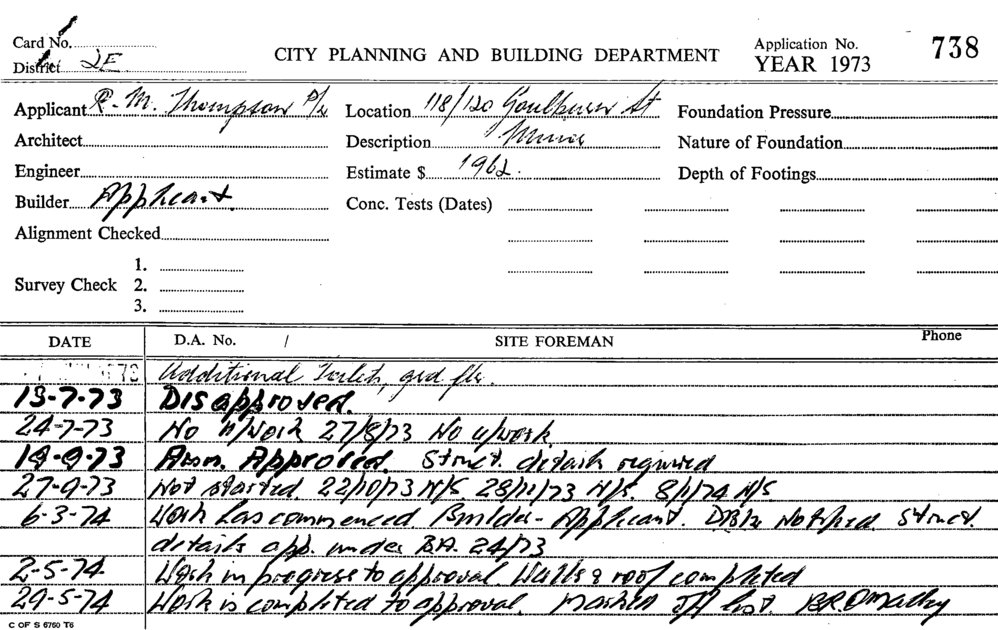 Card No.
District 2E
CITY PLANNING AND BUILDING DEPARTMENT
Application No. 738
YEAR 1973
Applicant R. M. Thompson P/L Location 118/120 Goulburn St Foundation Pressure
Architect Description Minor Nature of Foundation
Engineer Estimate $ 1962. Depth of Footings
Builder Applicant. Conc. Tests (Dates)
Alignment Checked
1.
Survey Check 2.
3.
DATE D.A. No. / SITE FOREMAN Phone
Additional Toilet, grd flr.
13-7-73 Disapproved.
24-7-73 No u/work 27/8/73 No u/work
19-9-73 Amn. Approved. Struct. details required
27-9-73 Not started. 22/10/73 N/S 28/11/73 N/S. 8/1/74 N/S
6-3-74 Work has commenced Builder - Applicant. Notified Struct.
details app. under BA. 24/73
2-5-74. Work in progress to approval. Walls & roof completed
29-5-74 Work is completed to approval. Marked off list. B.R.OMalley
C OF S 6760 T6